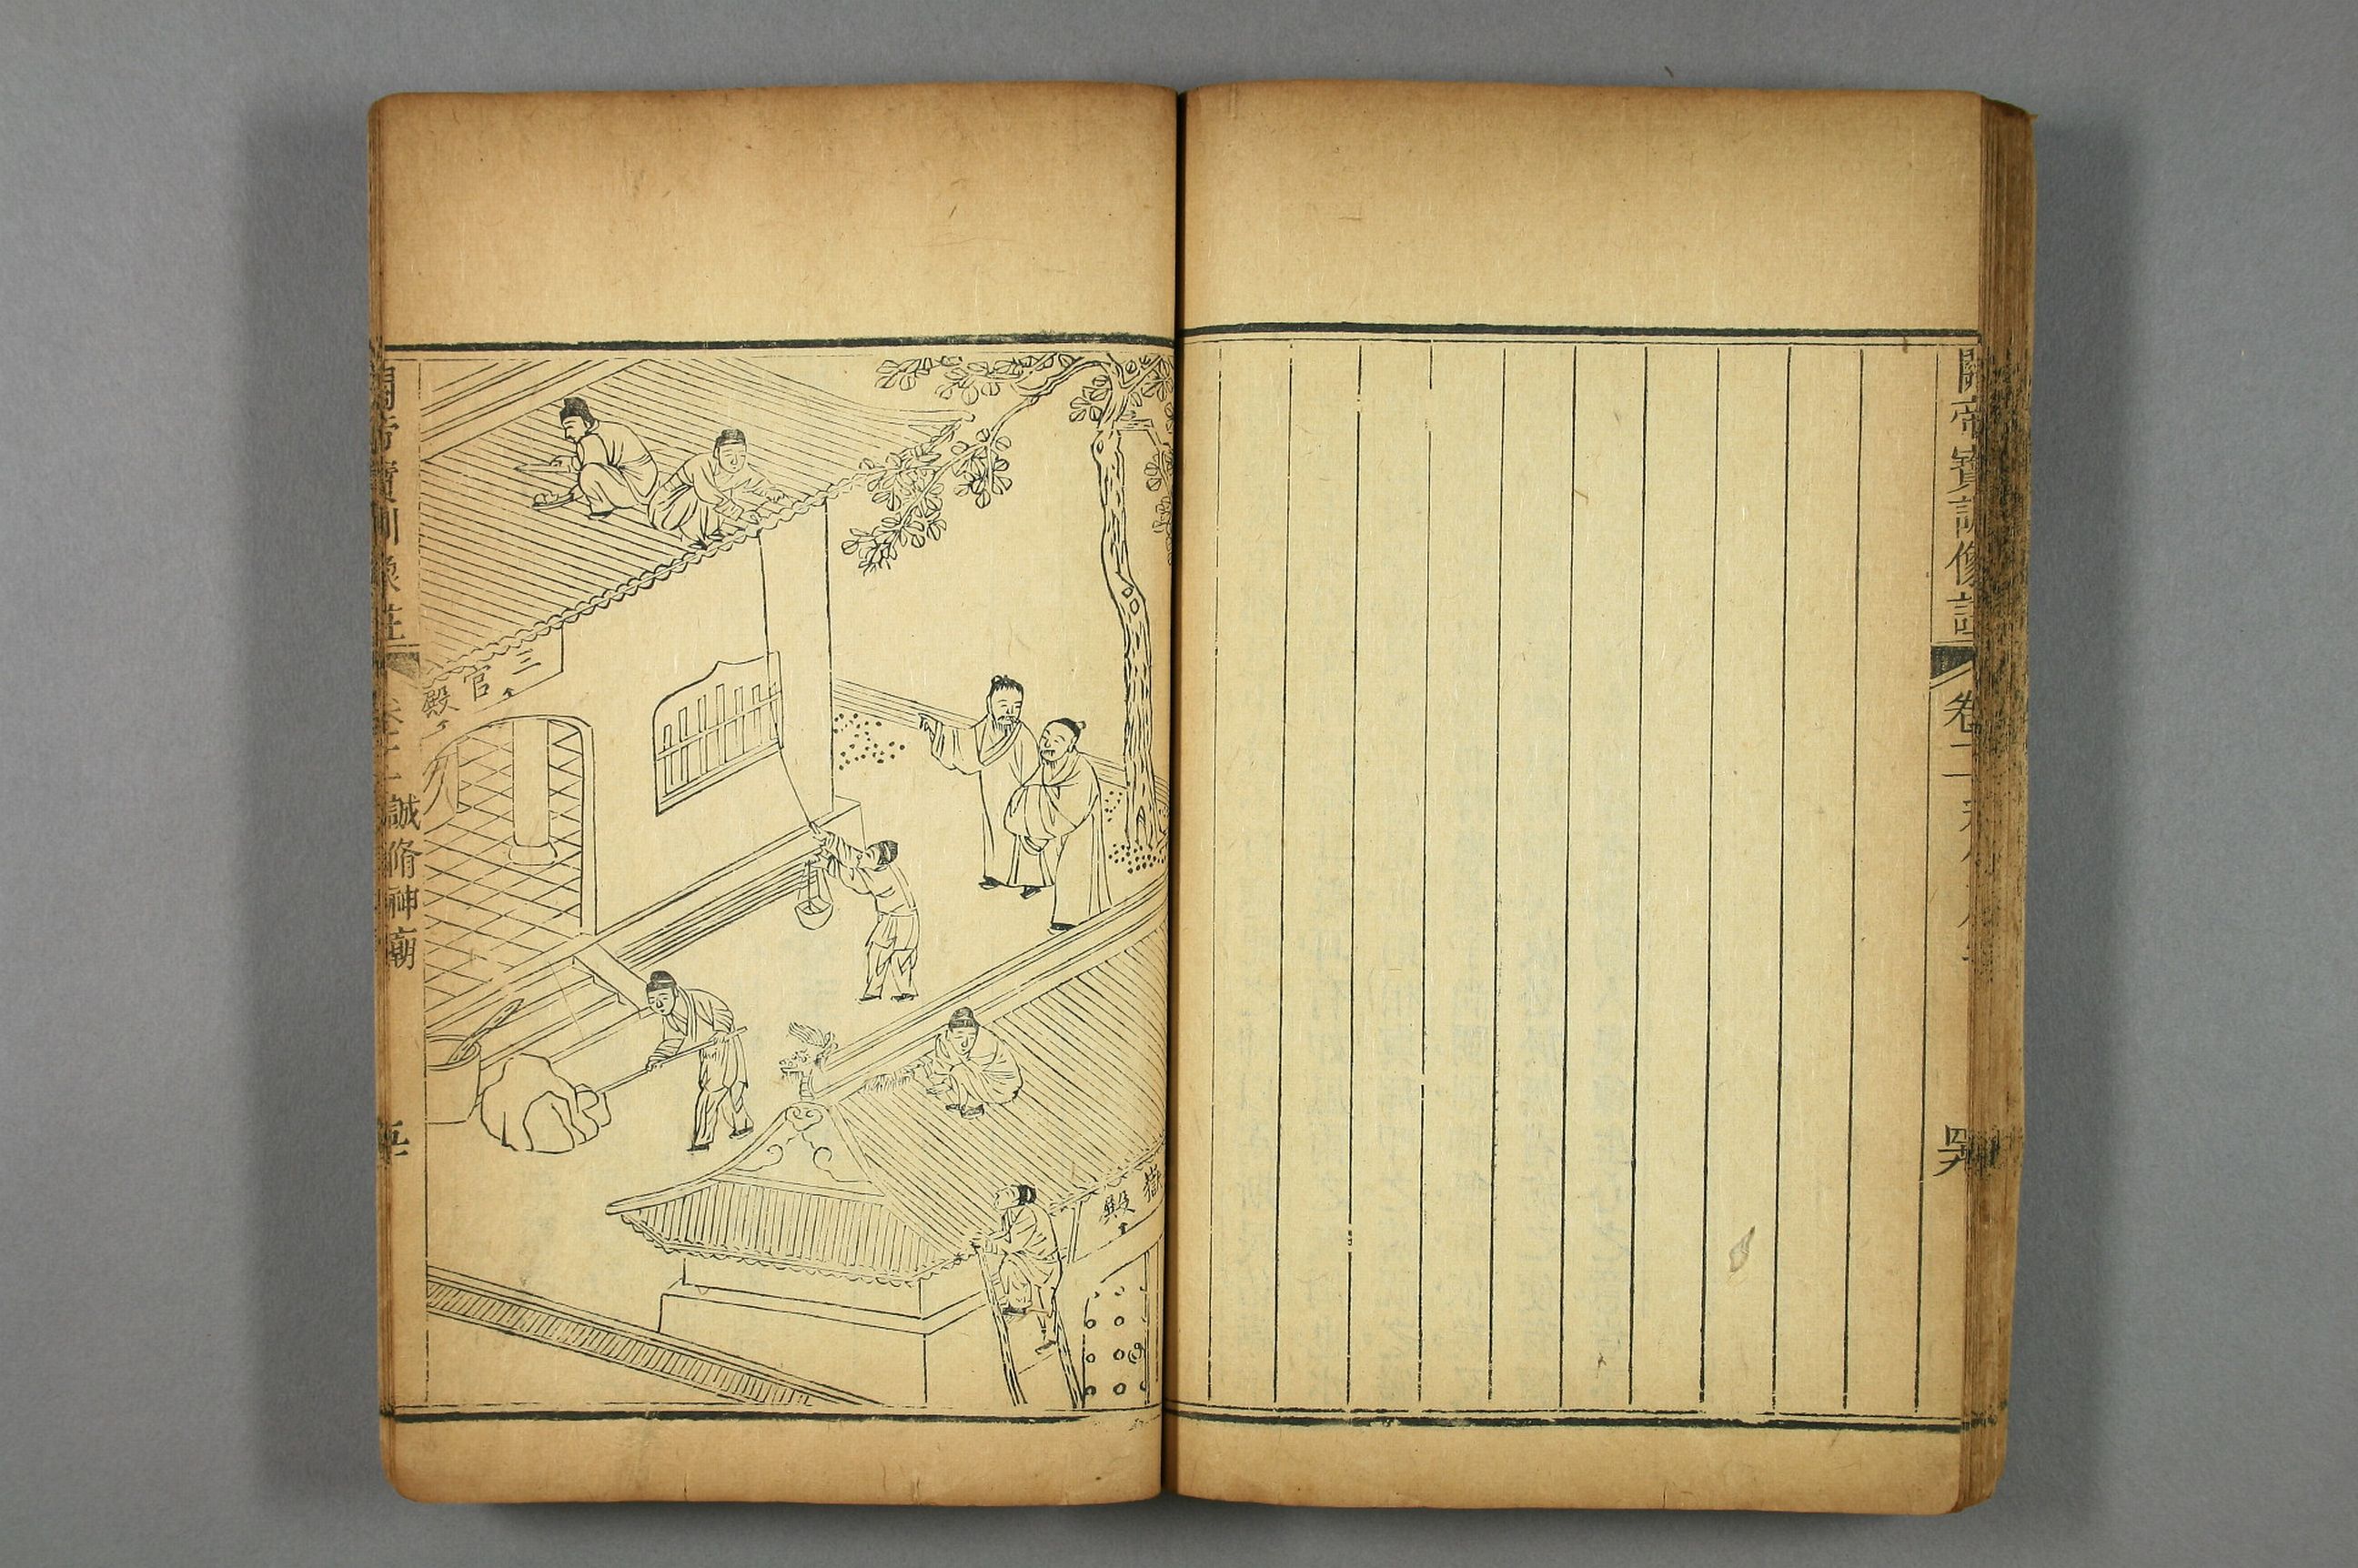 關帝寶訓像註
卷二
三官殿
嶽殿
關帝寶訓像註
卷二
誠脩神廟